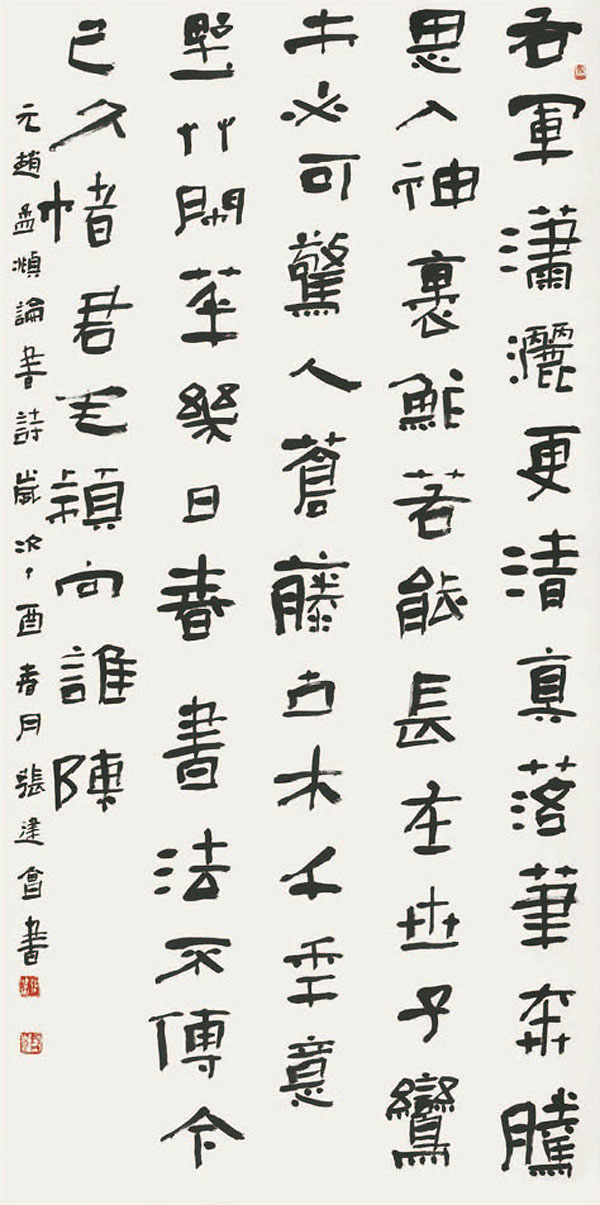 右軍瀟灑更清真落筆奔騰
思入神裏鮓若能長在世子鸞
未必可驚人蒼藤古木千年意
墅艸閑華幾日春書法不傳今
已久楮君毛穎向誰陳
元趙孟頫論書詩歲次丁酉春月張建會書